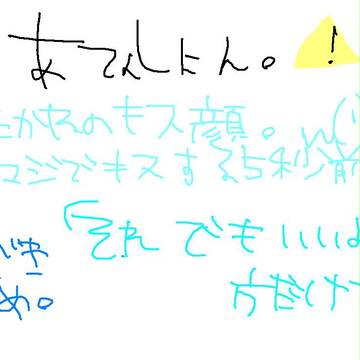 あてんしょん。!
たかやんのキス顔。
マジでキスする5秒前
それでもいいよ
方だけ
め。